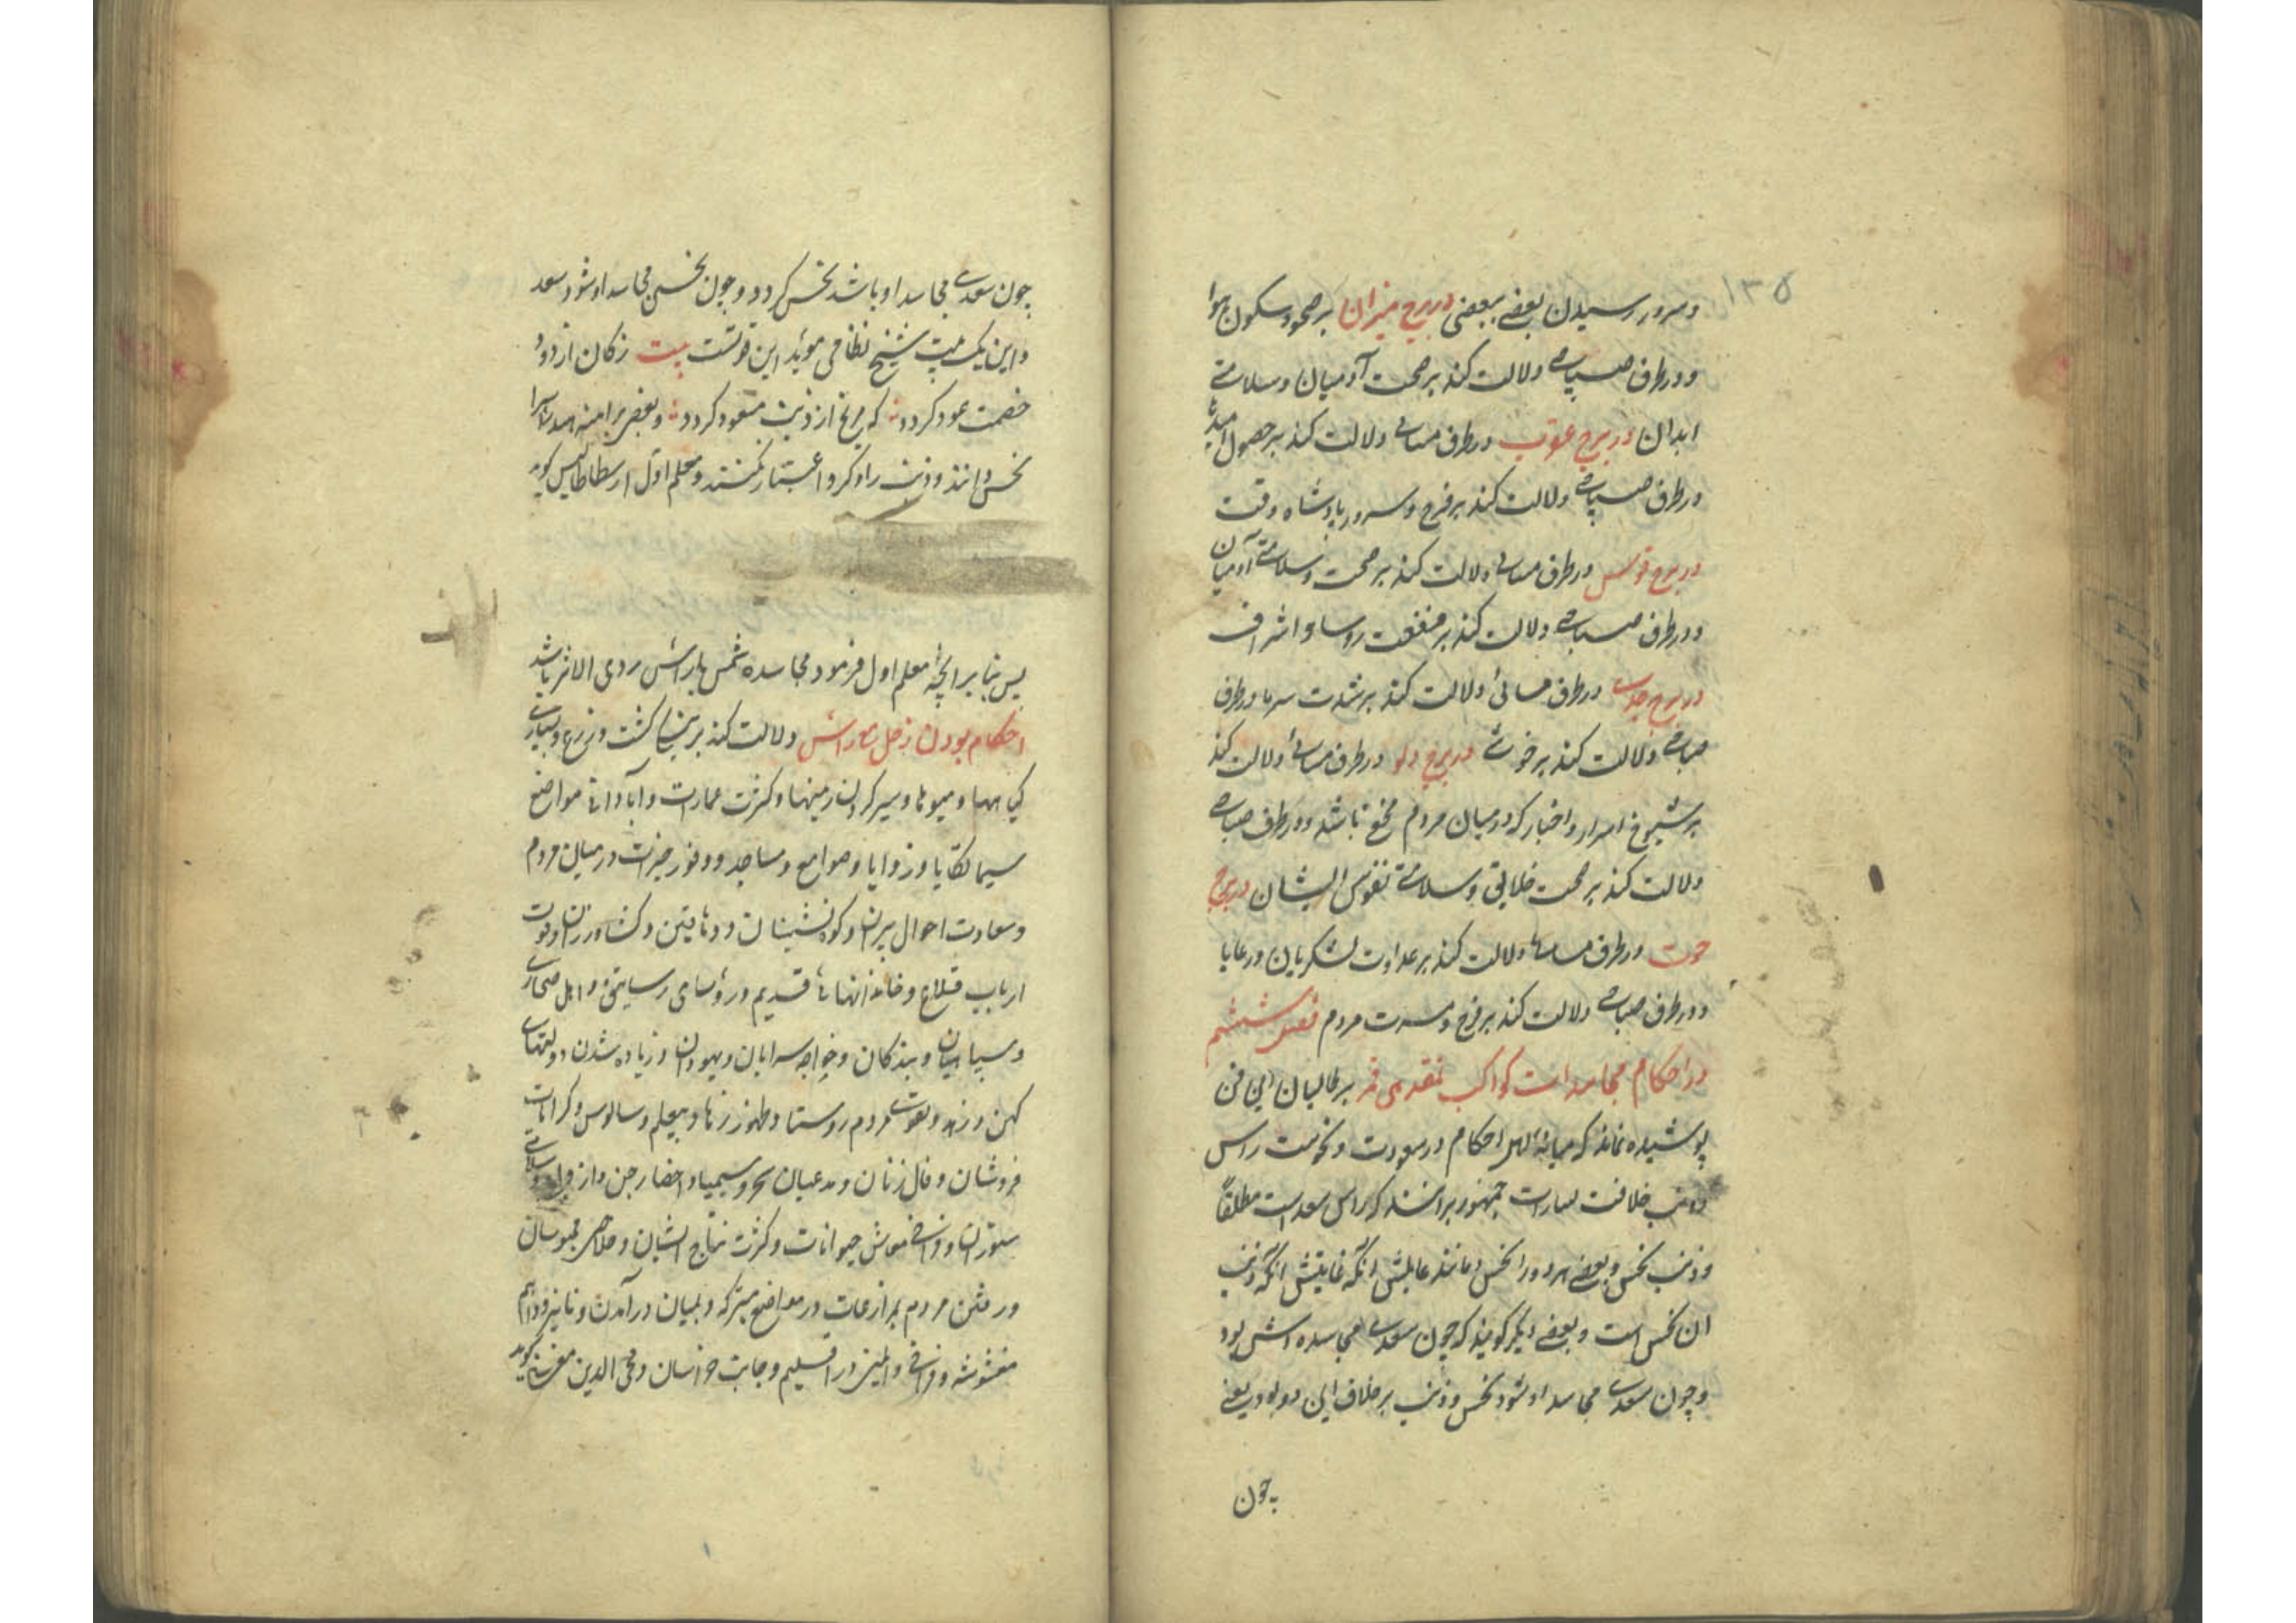 ۱۳۵
و سرور رسیدن بعضے ببعضی در برج میزان بر صحو و سکون هوا
و در طرف صباحے دلالت کند بر صحت آدمیان و سلامتے
ابدان در برج عقرب در طرف مسائے دلالت کند بر حصول امیدها
در طرف صباحے دلالت کند بر فرح و سرور پادشاه وقت
در برج قوس در طرف مسائے دلالت کند بر صحت و سلامتے آدمیان
و در طرف صباحے دلالت کند بر منفعت روسا و اشراف
در برج جدے در طرف مسائے دلالت کند بر شدت سرما و در طرف
صباحے دلالت کند بر خوشے در برج دلو در طرف مسائے دلالت کند
بر شیوع اسرار و اخبار که در میان مردم باشد و در طرف صباحے
دلالت کند بر صحت خلایق و سلامتے نفوس ایشان در برج
حوت در طرف مسائے دلالت کند بر عداوت لشکریان و رعایا
و در طرف صباحے دلالت کند بر فرح و مسرت مردم فصل ششم
در احکام مجاسدات کواکب بر طالبان این فن
پوشیده نماند که میانه اهل احکام در سعودت و نحوست راس
و ذنب خلافت بسیارست جمهور برانند که راس سعد است مطلقا
و ذنب نحس و بعضے هر دو را نحس دانند
آن نحس است و بعضے دیگر گویند که چون سعدے مجاسده اش بود
و چون سعدے مجاسد او شود نحس و ذنب بر خلاف این دو بود یعنے
چون
چون سعدے مجاسد او باشد نحس گردد و چون نحسے مجاسد او شود سعد
و این یک بیت شیخ نظامی موید این قولست بیت
خصمت عود گردد که مریخ از ذنب مسعود گردد و بعضے براهمه هند راس را
نحس دانند و ذنب را ذکر و اعتبار نکنند و معلم اول ارسطاطالیس گوید
پس بنا بر آنچه معلم اول فرمود مجاسده شمس با راس ردی الاثر باشد
احکام بودن زحل با راس دلالت کند بر کشت و زرع و بسیارے
گیاهها و میوها و کثرت عمارت و آبادانے مواضع
سیما و زوایا و صوامع و مساجد و وفور خیرات در میان مردم
و سعادت احوال پیران و گوشه نشینان و دهاقین و کشاورزان و قوت
ارباب قلاع و خاندانهائے قدیم و رؤسای رساتیق و اهل صحارے
و سپاهیان و بندگان و خواجه سرایان و یهودان و زیاده شدن دولتهاے
کهن و زهد و تقوے مردم روستا و ظهور و سالوس و کرامات
فروشان و فال زنان و مدعیان سحر و سیمیا و احضار جن و
ستوران و فراخے معاش حیوانات و کثرت نتاج ایشان و خلاصے محبوسان
و رفتن مردم بمزارعات و در مواضع متبرکه و
مغشوشه و فراخے و ایمنے در اقلیم و جانب خراسان و محی الدین مغربے گوید